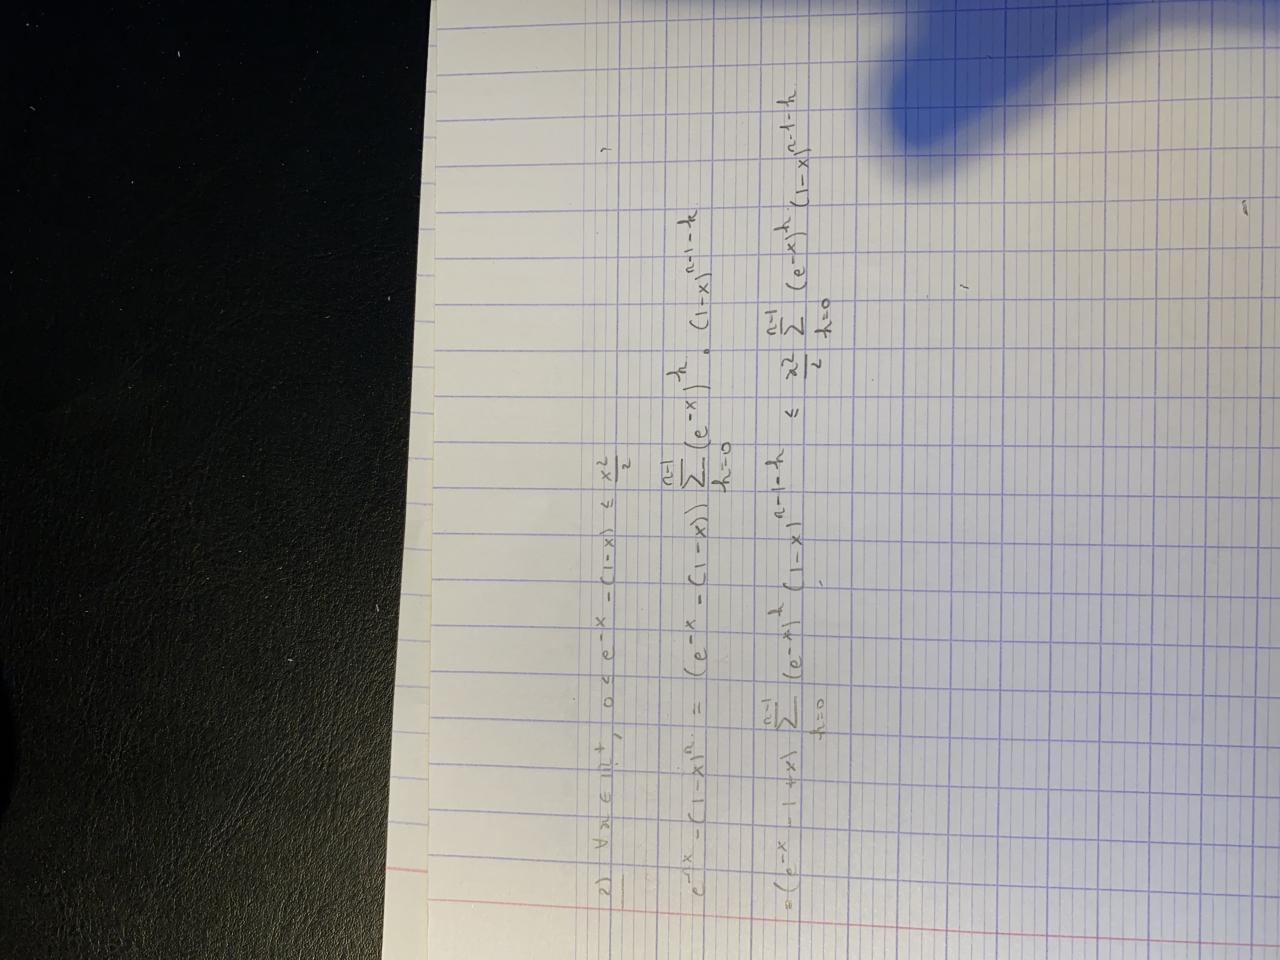 2) ∀ x ∈ ℝ⁺, 0 ≤ e^{-x} - (1-x) ≤ x²/2
e^{-nx} - (1-x)^n = (e^{-x} - (1-x)) ∑_{k=0}^{n-1} (e^{-x})^k · (1-x)^{n-1-k}
= (e^{-x} - 1 + x) ∑_{k=0}^{n-1} (e^{-x})^k (1-x)^{n-1-k} ≤ x²/2 ∑_{k=0}^{n-1} (e^{-x})^k (1-x)^{n-1-k}